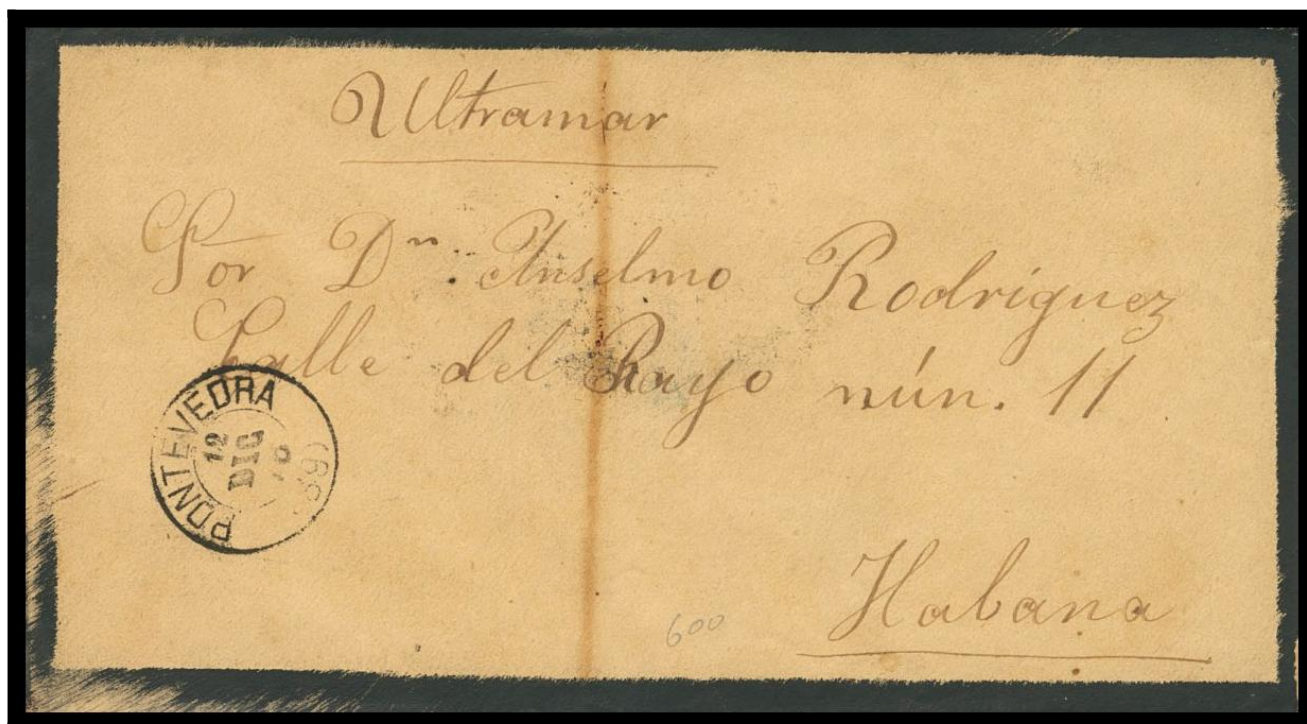 Ultramar
Sor Dn Anselmo Rodríguez
Calle del Rayo nún. 11
PONTEVEDRA
12
DIC
Habana
600